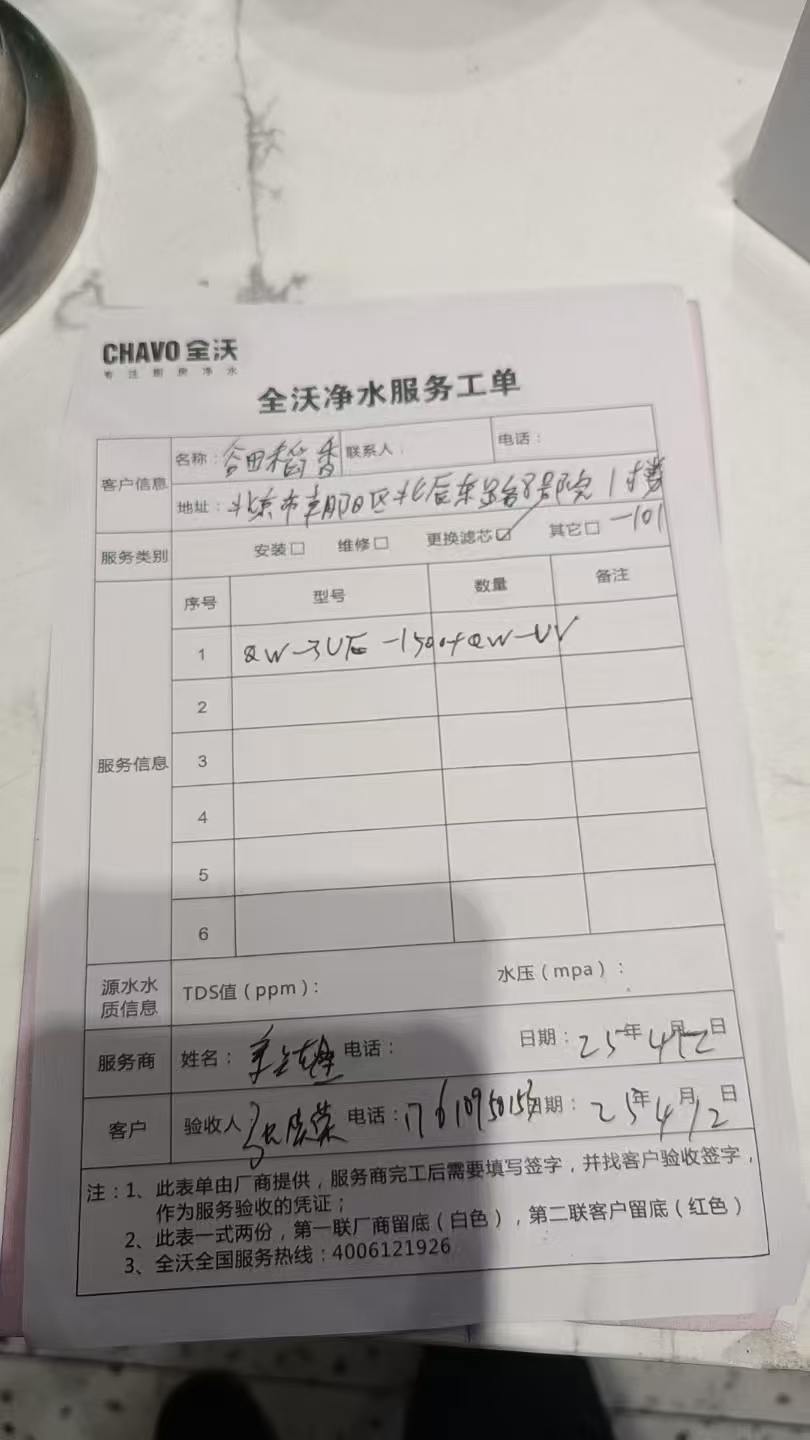 CHAVO 全沃
专注厨房净水
全沃净水服务工单
客户信息 名称：谷田稻香 联系人： 电话：
地址：北京市朝阳区北辰东路8号院1楼
-101
服务类别 安装□ 维修□ 更换滤芯☑ 其它□
服务信息 序号 型号 数量 备注
1 QW-3UF-1500+QW-UV
2
3
4
5
6
源水水质信息 TDS值（ppm）： 水压（mpa）：
服务商 姓名： 电话： 日期：25年4月12日
客户 验收人 电话：17610950153 日期：25年4月12日
注：1、此表单由厂商提供，服务商完工后需要填写签字，并找客户验收签字，
作为服务验收的凭证；
2、此表一式两份，第一联厂商留底（白色），第二联客户留底（红色）
3、全沃全国服务热线：4006121926